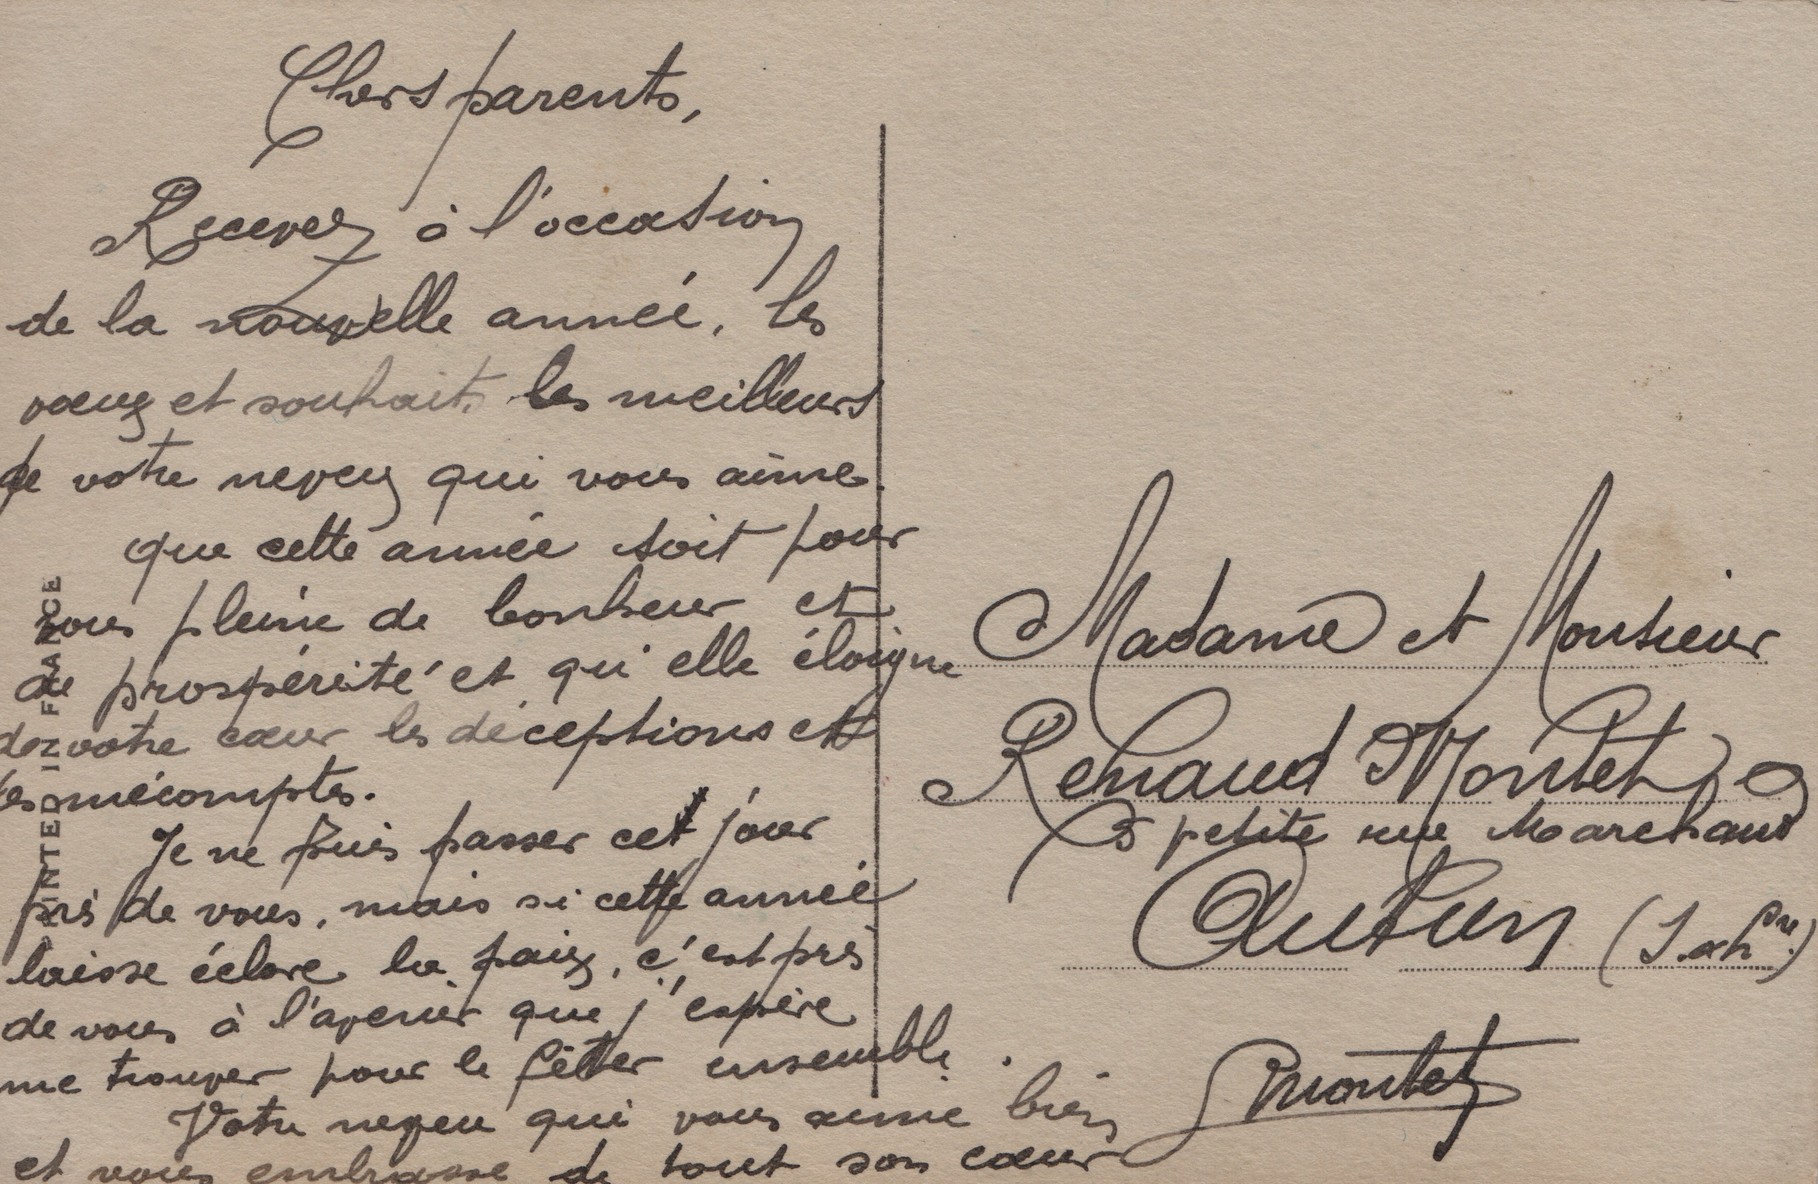 Chers parents,
Recevez à l'occasion
de la nouvelle année, les
vœux et souhaits les meilleurs
de votre neveu qui vous aime.
que cette année soit pour
vous pleine de bonheur et
de prospérité et qu'elle éloigne
de votre cœur les déceptions et
les mécomptes.
Je ne puis passer cet jour
près de vous, mais si cette année
laisse éclore la paix, c'est près
de vous à l'avenir que j'espère
me trouver pour le fêter ensemble.
Votre neveu qui vous aime bien
et vous embrasse de tout son cœur
Montet
PRINTED IN FRANCE
Madame et Monsieur
Renaud Montet
8 petite rue Marchaud
Autun (S. et L re)